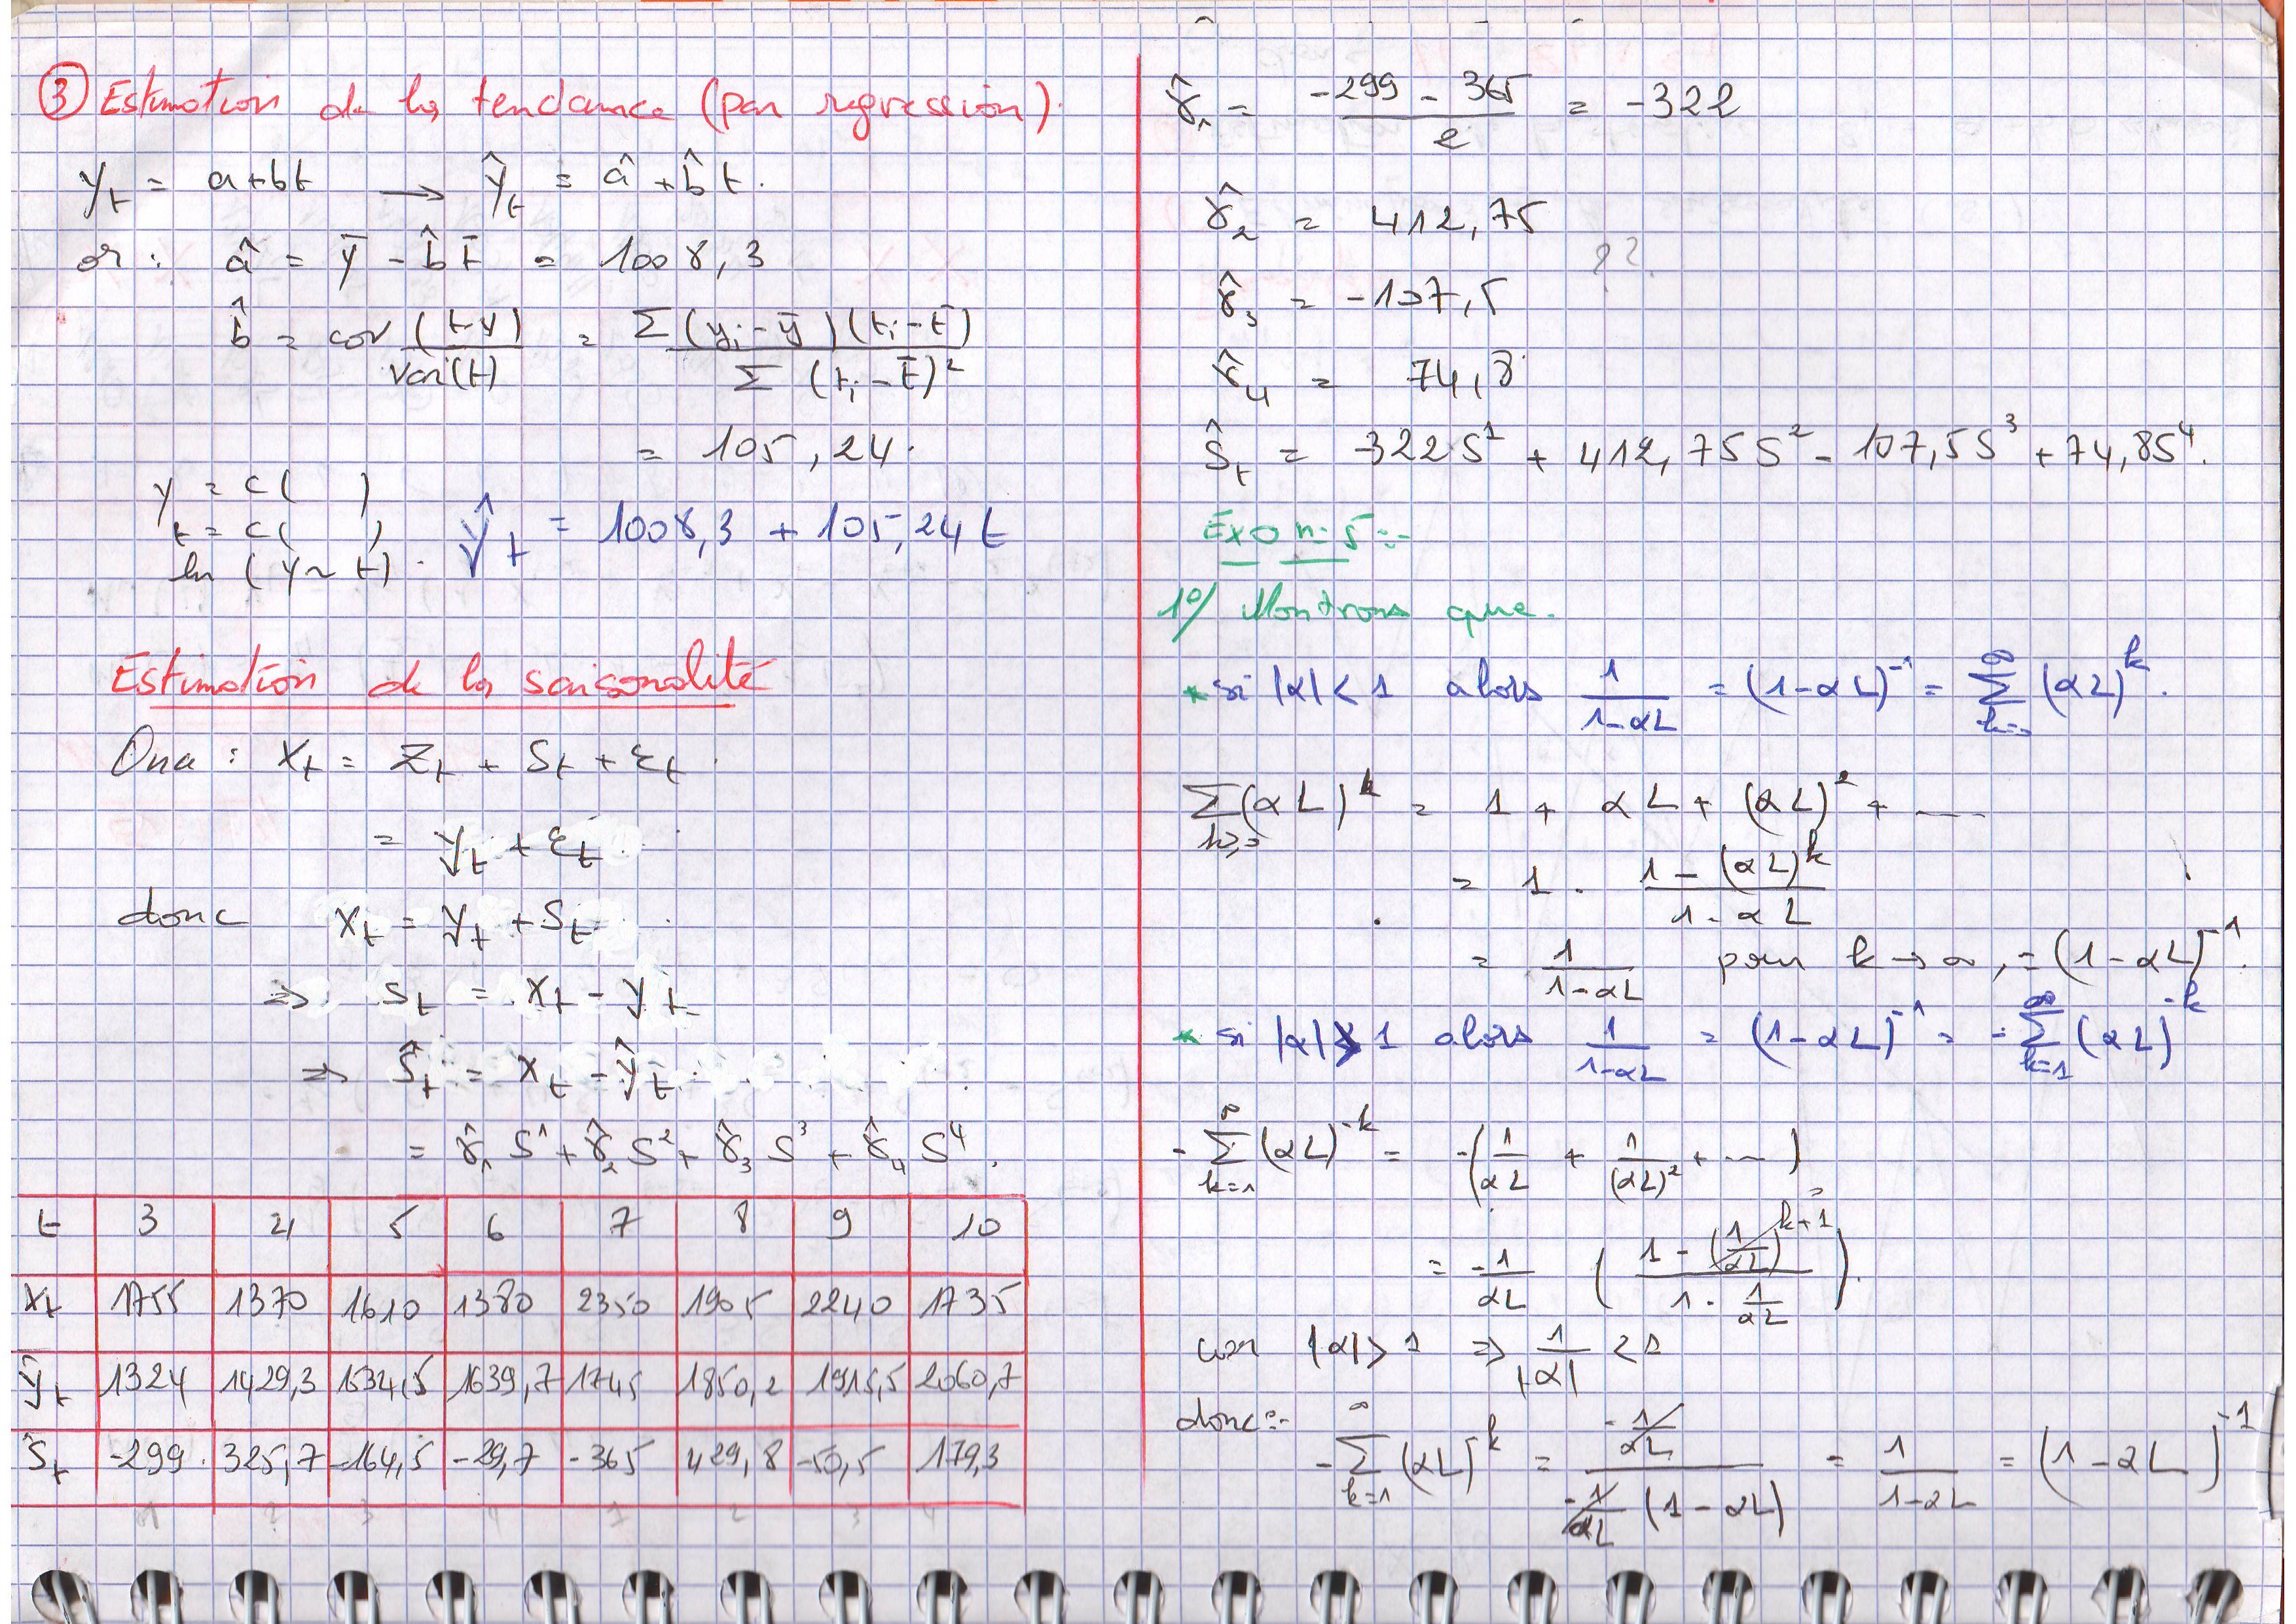 ③ Estimation de la tendance (par regression).
y_t = a+bt → ŷ_t = â + b̂ t.
or : â = ȳ - b̂ t̄ = 1008,3
b̂ = cov (t-y) / var(t) = Σ (y_i - ȳ)(t_i - t̄) / Σ (t_i - t̄)²
= 105,24.
y = c( )
t = c( )
lm (y~t).
ŷ_t = 1008,3 + 105,24 t
Estimation de la saisonalité
On a : X_t = Z_t + S_t + ε_t.
= y_t + ε_t.
donc X_t = y_t + S_t
⇒ S_t = X_t - y_t
⇒ Ŝ_t = X_t - ŷ_t.
= γ̂_1 S¹ + γ̂_2 S² + γ̂_3 S³ + γ̂_4 S⁴.
t 3 4 5 6 7 8 9 10
X_t 1755 1370 1610 1380 2350 1905 2240 1735
ŷ_t 1324 1429,3 1534,5 1639,7 1745 1850,2 1915,5 2060,7
Ŝ_t -299. 325,7 -164,5 -29,7 -365 429,8 -50,5 179,3
1 2 3 4 1 2 3 4
γ̂_1 = (-299 - 365) / 2 = -322
γ̂_2 = 412,75
??
γ̂_3 = -107,5
γ̂_4 = 74,8
Ŝ_t = -322 S¹ + 412,75 S² - 107,5 S³ + 74,8 S⁴.
Exo n: 5 :-
1º/ Montrons que.
* si |α| < 1 alors 1/(1-αL) = (1-αL)⁻¹ = Σ_{k=0}^∞ (αL)^k.
Σ_{k≥0} (αL)^k = 1 + αL + (αL)² + ....
= 1 . (1 - (αL)^k) / (1 - αL)
= 1/(1-αL) pour k → ∞, = (1-αL)⁻¹.
* si |α| > 1 alors 1/(1-αL) = (1-αL)⁻¹ = -Σ_{k=1}^∞ (αL)^{-k}
-Σ_{k=1}^∞ (αL)^{-k} = -(1/αL + 1/(αL)² + ...)
= -1/αL ( (1 - (1/αL)^{k+1}) / (1 - 1/αL) ).
car |α| > 1 ⇒ 1/|α| < 1
donc :- -Σ_{k=1}^∞ (αL)^k = (-1/αL) / (-1/αL (1-αL)) = 1/(1-αL) = (1-αL)⁻¹